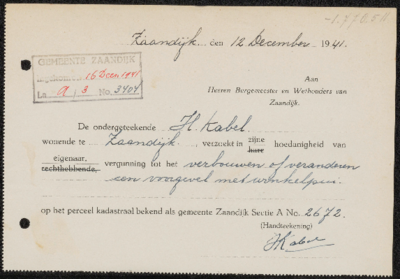 Zaandijk den 12 December 1941.
GEMEENTE ZAANDIJK
16 Decem 1941
La A : 3 No. 3404
Aan
Heeren Burgemeester en Wethouders van
Zaandijk.
De ondergeteekende H. Kabel.
wonende te Zaandijk, verzoekt in zijne hoedanigheid van
hare
eigenaar,
rechthebbende, vergunning tot het verbouwen of veranderen
een voorgevel met winkelpui.
op het perceel kadastraal bekend als gemeente Zaandijk Sectie A No. 2672.
(Handteekening)
HKabel